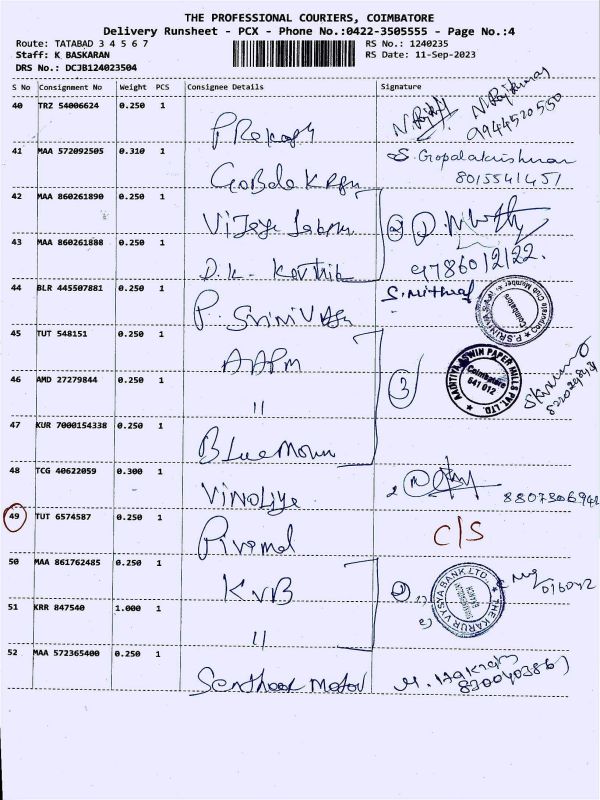 THE PROFESSIONAL COURIERS, COIMBATORE
Delivery Runsheet - PCX - Phone No.:0422-3505555 - Page No.:4
Route: TATABAD 3 4 5 6 7
RS No.: 1240235
Staff: K BASKARAN
RS Date: 11-Sep-2023
DRS No.: DCJB124023504
S No Consignment No Weight PCS Consignee Details Signature
40 TRZ 54006624 0.250 1
9944520550
41 MAA 572092505 0.310 1 S. Gopalakrishnan
8015541451
42 MAA 860261890 0.250 1
43 MAA 860261888 0.250 1 D.K. Karthik
9786012122.
44 BLR 445507881 0.250 1 P. Srinivasan
45 TUT 548151 0.250 1 AAPM
AADITIYA ASWIN PAPER MILLS PVT. LTD.
Coimbatore
641 012
46 AMD 27279844 0.250 1 "
3
47 KUR 7000154338 0.250 1 Blue Moun
48 TCG 40622059 0.300 1
8807306942
49 TUT 6574587 0.250 1 C/S
50 MAA 861762485 0.250 1 KVB
THE KARUR VYSYA BANK LTD.
016042
51 KRR 847540 1.000 1 "
52 MAA 572365400 0.250 1 Senthoor Motor